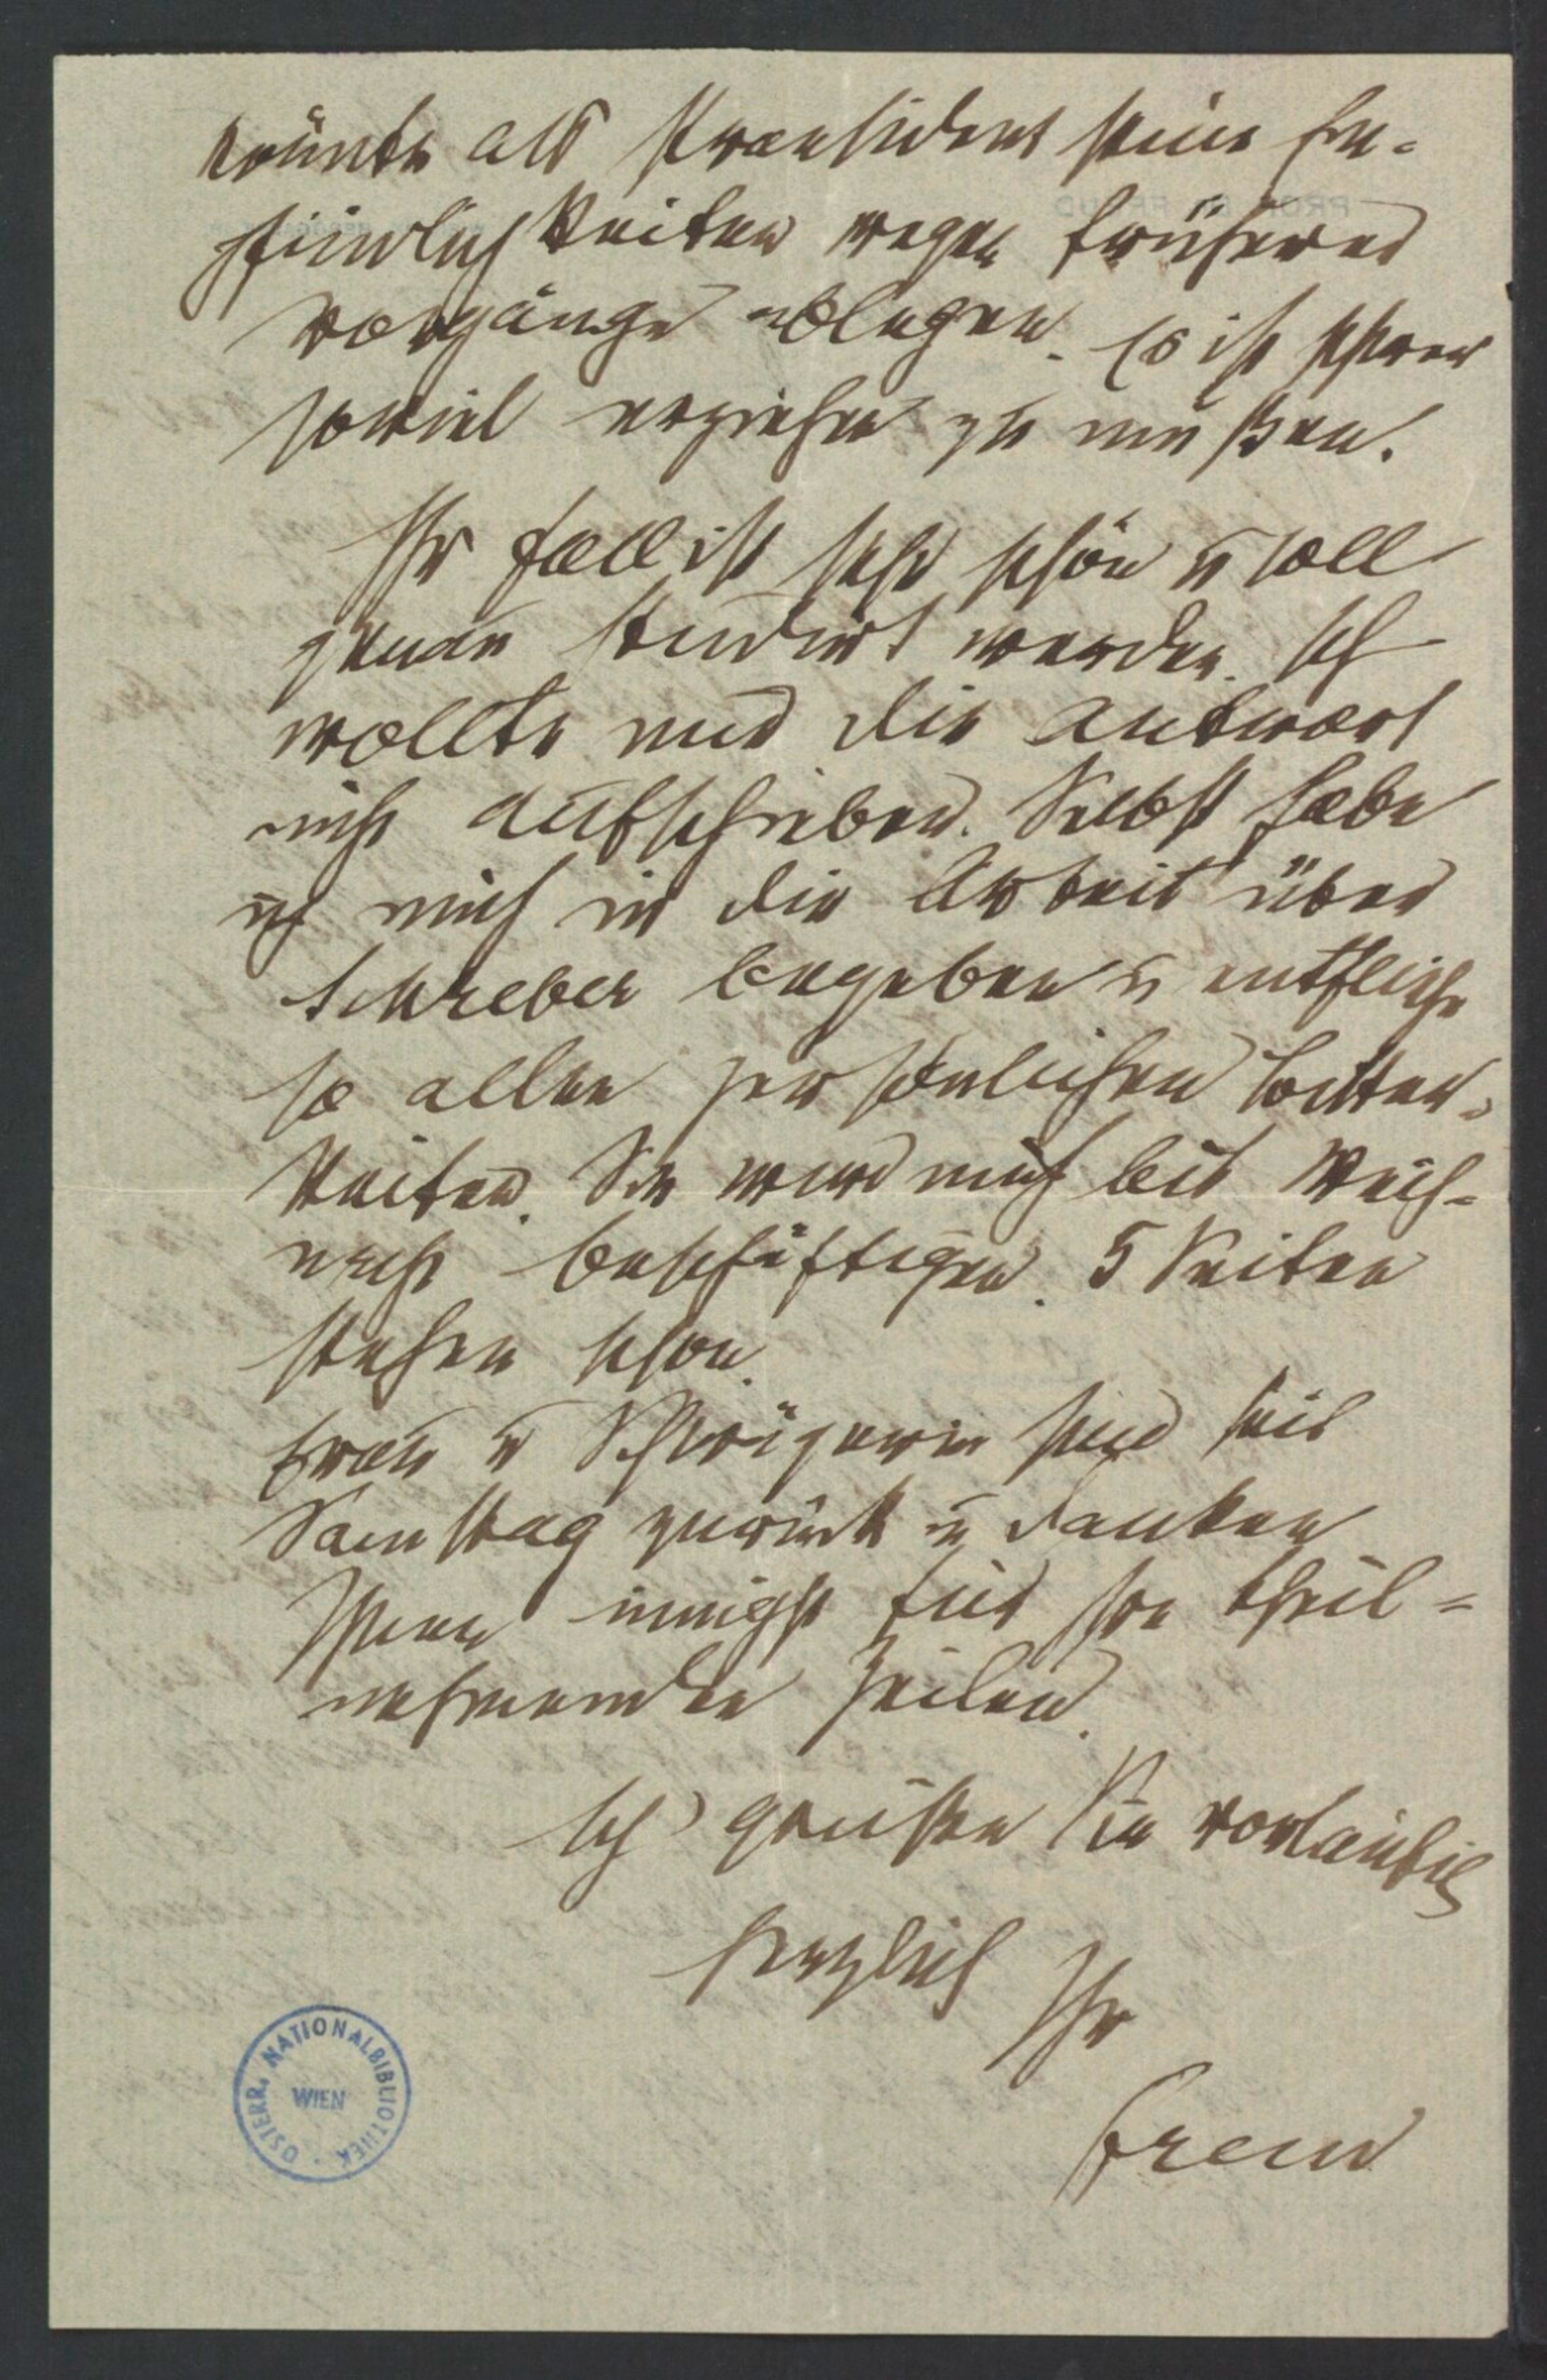 könnte als Praesident seine Em-
pfindlichkeiten wegen früherer
Vorgänge ablegen. Es ist schwer
soviel erziehen zu müßen.
Ihr Fall ist sehr schön u soll
genau studirt werden. Ich
wollte nur die Antwort
nicht aufschieben. Selbst habe
ich mich in die Arbeit über
Schreber begeben u entfliehe
so allen persönlichen Bitter-
keiten. Sie wird mich bis Weih-
nacht beschäftigen. 5 Seiten
stehen schon.
Frau u Schwägerin sind seit
Samstag zurück u danken
Ihnen innigst für Ihre theil-
nehmenden Zeilen.
Ich grüße Sie vorläufig
herzlich
Ihr
Freud
ÖSTERR. NATIONALBIBLIOTHEK
WIEN